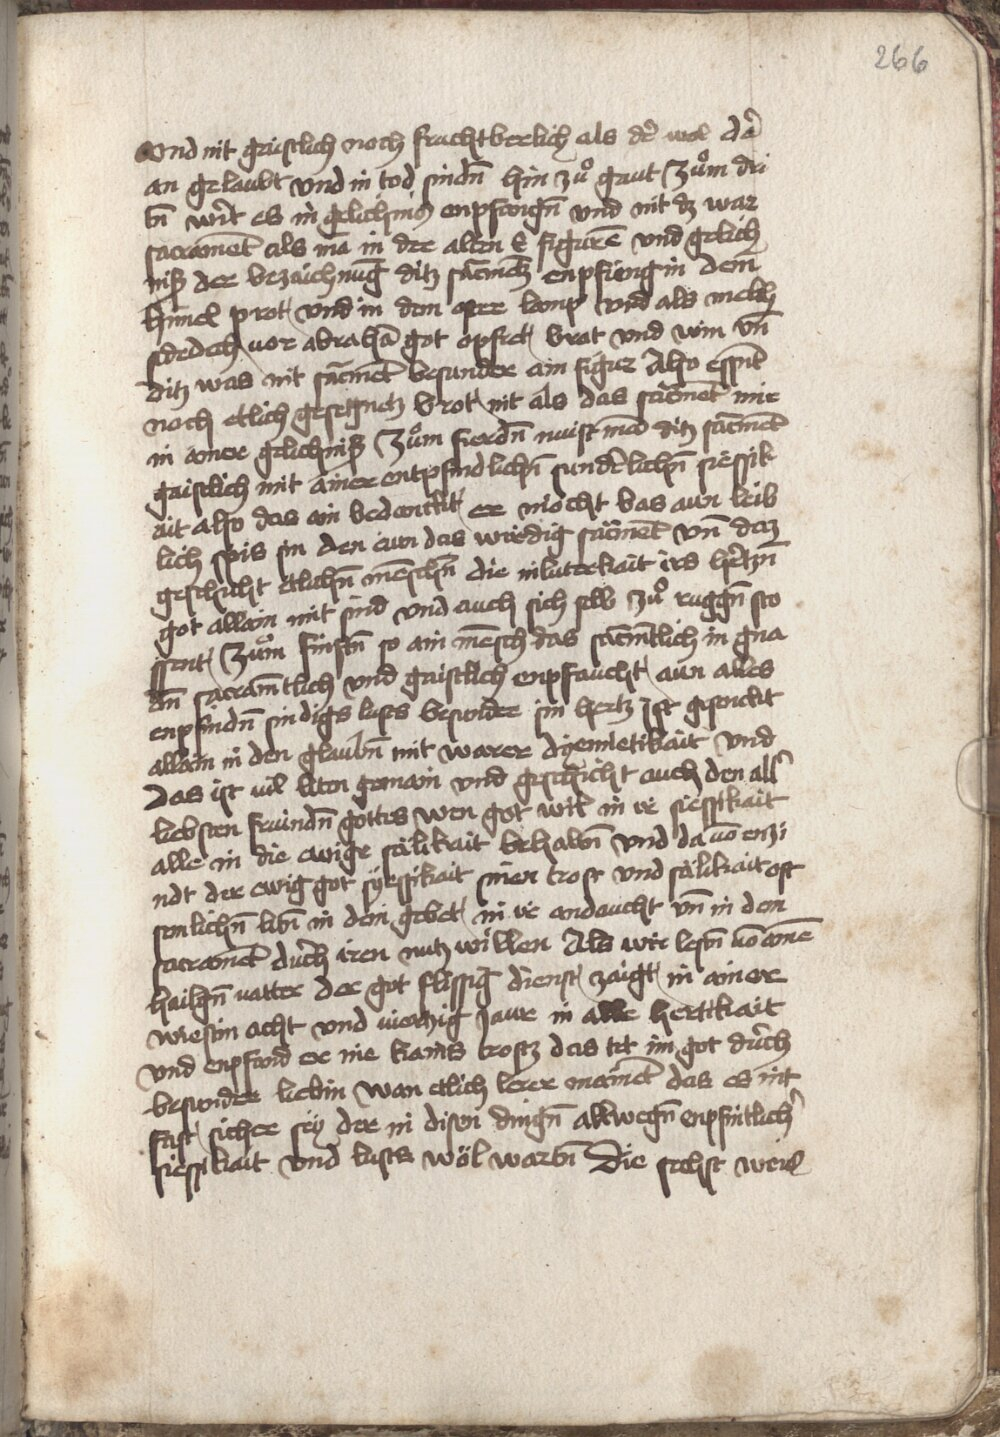 266
Vnd nit gaistlich noch fruchtberlich als der wol dar
an gelaubt vnd in tod sindn̄ hin zů gaut Zům dri
tn̄ wirt es in gelichnis enpfangn̄ vnd nit dz war
sacrament als mā in der alten e figurē vnd gelich
niß der bezaichnūg ditz sacmētz enpfieng in dem
himel prot vnd in dem oster lamp vnd als melch
sedech vor abrahā got opfret brot vnd win vn̄
ditz was nit sacmēt besunder ain figur Also
noch etlich gesegnetz brot nit als das sacmēt mir
in ainer gelichniß Zům fierdn̄ nuist mā ditz sacmēt
gaistlich mit ainer entpfindlichn̄ sunderlichn̄ siessik
ait also das ain bedunckt er mocht bas aun lib
lich spis sin den aun das wirdig sacmēt vn̄ daz
geschicht etlichn̄ menschn̄ die in luterkait irs hertzn̄
got allain mit sind vnd auch sich selb zů ruggn̄ sto
ssent Zům finftn̄ so ain mēsch das sacmētlich in gna
dn̄ sacramētlich vnd gaistlich enpfaucht aun alles
enpfindn̄ sindigs lusts besunder sin hertz ist gesenckt
allain in den glaubn̄ mit warer dyemietikait vnd
Das ist vil lüten gemain vnd geschicht auch den aller
liebsten fruindn̄ gottes wen got wil in ir siessikait
alle in die ewige sälikait behaltn̄ vnd da vō enzi
ndt der ewig got syessikait sinen trost vnd sälikait oft
semlichn̄ libn̄ in dem gebet in ir andaucht vn̄ in dem
sacramēt durch iren nutz willen Als wir lesn̄ vō aime
hailgn̄ vatter der got flissig dienst zaigt in ainer
wiestin acht vnd vierzig Jaur in alle hertikait
vnd enpfand er nie kains trostz das tet im got durch
besunder liebin wan etlich lerer mainēt das es nit
fast sicher sey der in disen dingn̄ allwegn̄ enpfintlicher
siessikait vnd lusts wöl wartn̄ Die sechst weis